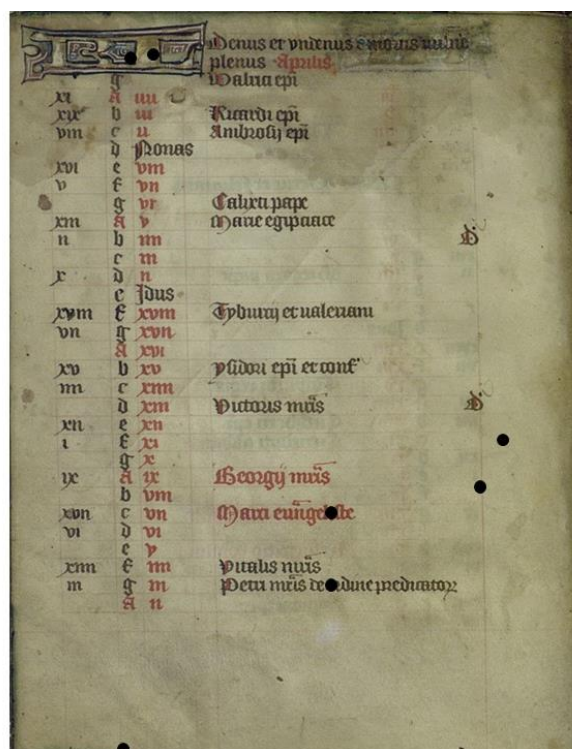 Denus et undenus est mortis uulne
plenus Aprilis
g Walrici epi
xi A iiii
xix b iii Ricardi epi
viii c ii Ambrosij epi
d Nonas
xvi e viii
v f vii
g vi Calixti pape
xiii A v Marie egiptiace
ii b iiii D
c iii
x d ii
e Idus
xviii f xviii Tyburtij et ualeriani
vii g xvii
A xvi
xv b xv ysidori epi et conf
iiii c xiiii
d xiii Victoris mris D
xii e xii
i f xi
g x
ix A ix Georgij mris
b viii
xvii c vii Marci
vi d vi
e v
xiiii f iiii Vitalis mris
iii g iii Petri mris de predicator
A ii